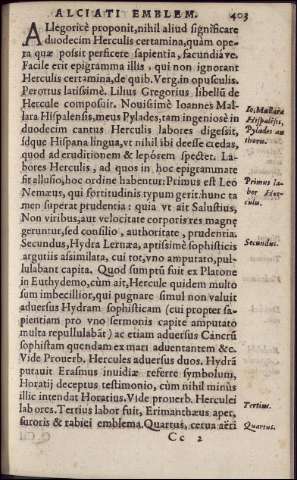 ALCIATI EMBLEM. 403
ALlegoricè proponit, nihil aliud significare
duodecim Herculis certamina, quàm ope-
ra quæ possit perficere sapientia, facundiáve.
Facile erit epigramma illis, qui non ignorant
Herculis certamina, de quib. Verg. in opusculis.
Perottus latissimè. Lilius Gregorius libellũ de
Hercule composuit. Nouissimè Ioannes Mal-
lara Hispalensis, meus Pylades, tam ingeniosè in
duodecim cantus Herculis labores digessit,
idque Hispana lingua, vt nihil ibi deesse credas,
quod ad eruditionem & lepórem spectet. La-
bores Herculis, ad quos in hoc epigrammate
fit allusio, hoc ordine habentur: Primus est Leo
Nemæus, qui fortitudinis typum gerit. hunc ta
men superat prudentia: quia vt ait Salustius,
Non viribus, aut velocitate corporis res magnę
geruntur, sed consilio, authoritate, prudentia.
Secundus, Hydra Lernæa, aptissimè sophisticis
argutiis assimilata, cui tot, vno amputato, pul-
lulabant capita. Quod sumptũ fuit ex Platone
in Euthydemo, cùm ait, Hercule quidem multo
sum imbecillior, qui pugnare simul non valuit
aduersus Hydram sophisticam (cui propter sa-
pientiam pro vno sermonis capite amputato
multa repullulabãt) ac etiam aduersus Cancrũ
sophistam quendam ex mari aduentantem &c.
Vide Prouerb. Hercules aduersus duos. Hydrã
putauit Erasmus inuidiæ referre symbolum,
Horatij deceptus testimonio, cùm nihil minùs
illic intendat Horatius. Vide prouerb. Herculei
labores. Tertius labor fuit, Erimanthæus aper,
furoris & rabiei emblema. Quartus, cerua æri
Cc 2
Io. Mallara
Hispalẽsis,
Pylades au
thoru.
Primus la-
bor Her-
culu.
Secundus.
Tertius.
Quartus.